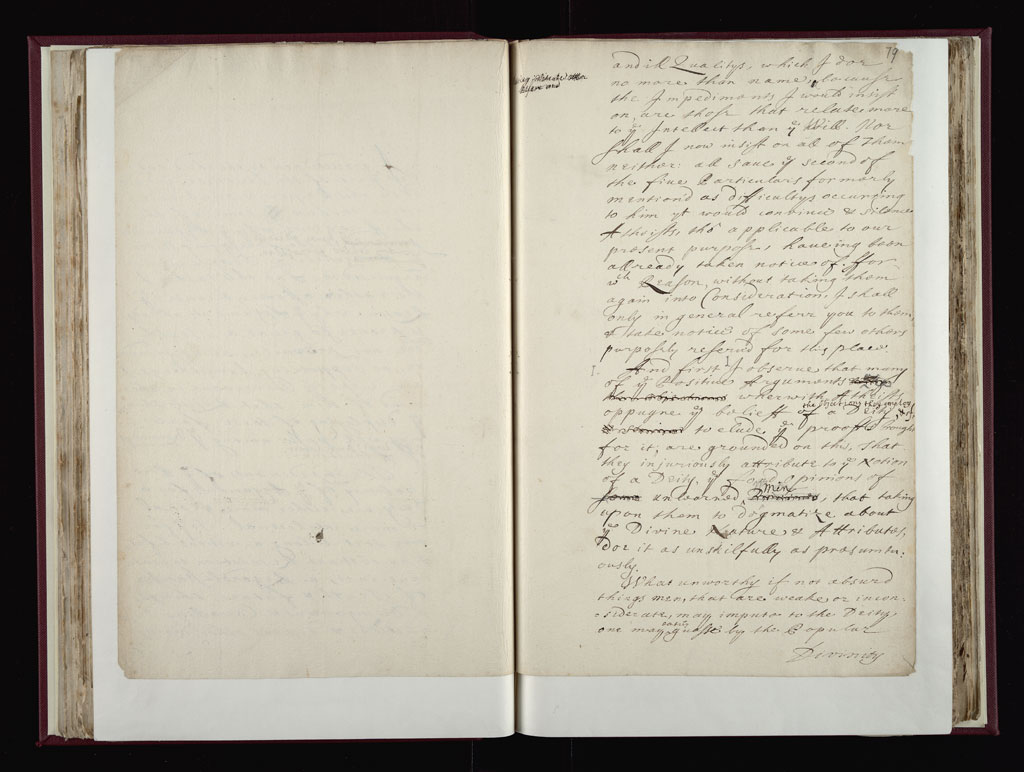 79
and ill Qualitys, which I doe
no more than name, because
the Impediments I would insist
on, are those that relate more
to ye Intellect than ye Will. Nor
shall I now insist on all of Them
neither: all save ye second of
the five Particulars formerly
mentiond as difficultys occurring
to him yt would convince & silence
Atheists, tho' applicable to our
present purpose, haveing been
allready taken notice of. ffor
wch Reason, without takeing them
again into Consideration, I shall
only in general referr you to them,
& take notice of some few others
purposely reserv'd for this place.
I. And first I observe that many
of ye Positive Arguments
wherwith Atheists
oppugne ye belieff of a Deity, & of
the shifts they imploy
to elude ye proofs brought
for it; are grounded on this, that
they injuriously attribute to ye Notion
of a Deity, ye opinions of
some unlearned men, that takeing
upon them to dogmatize about
ye Divine Nature & Attributes,
doe it as unskilfully as presumtu-
ously.
What unworthy if not absurd
things men, that are weake, or incon-
siderate, may impute to the Deity
one may easily guess by the Popular
Divinity